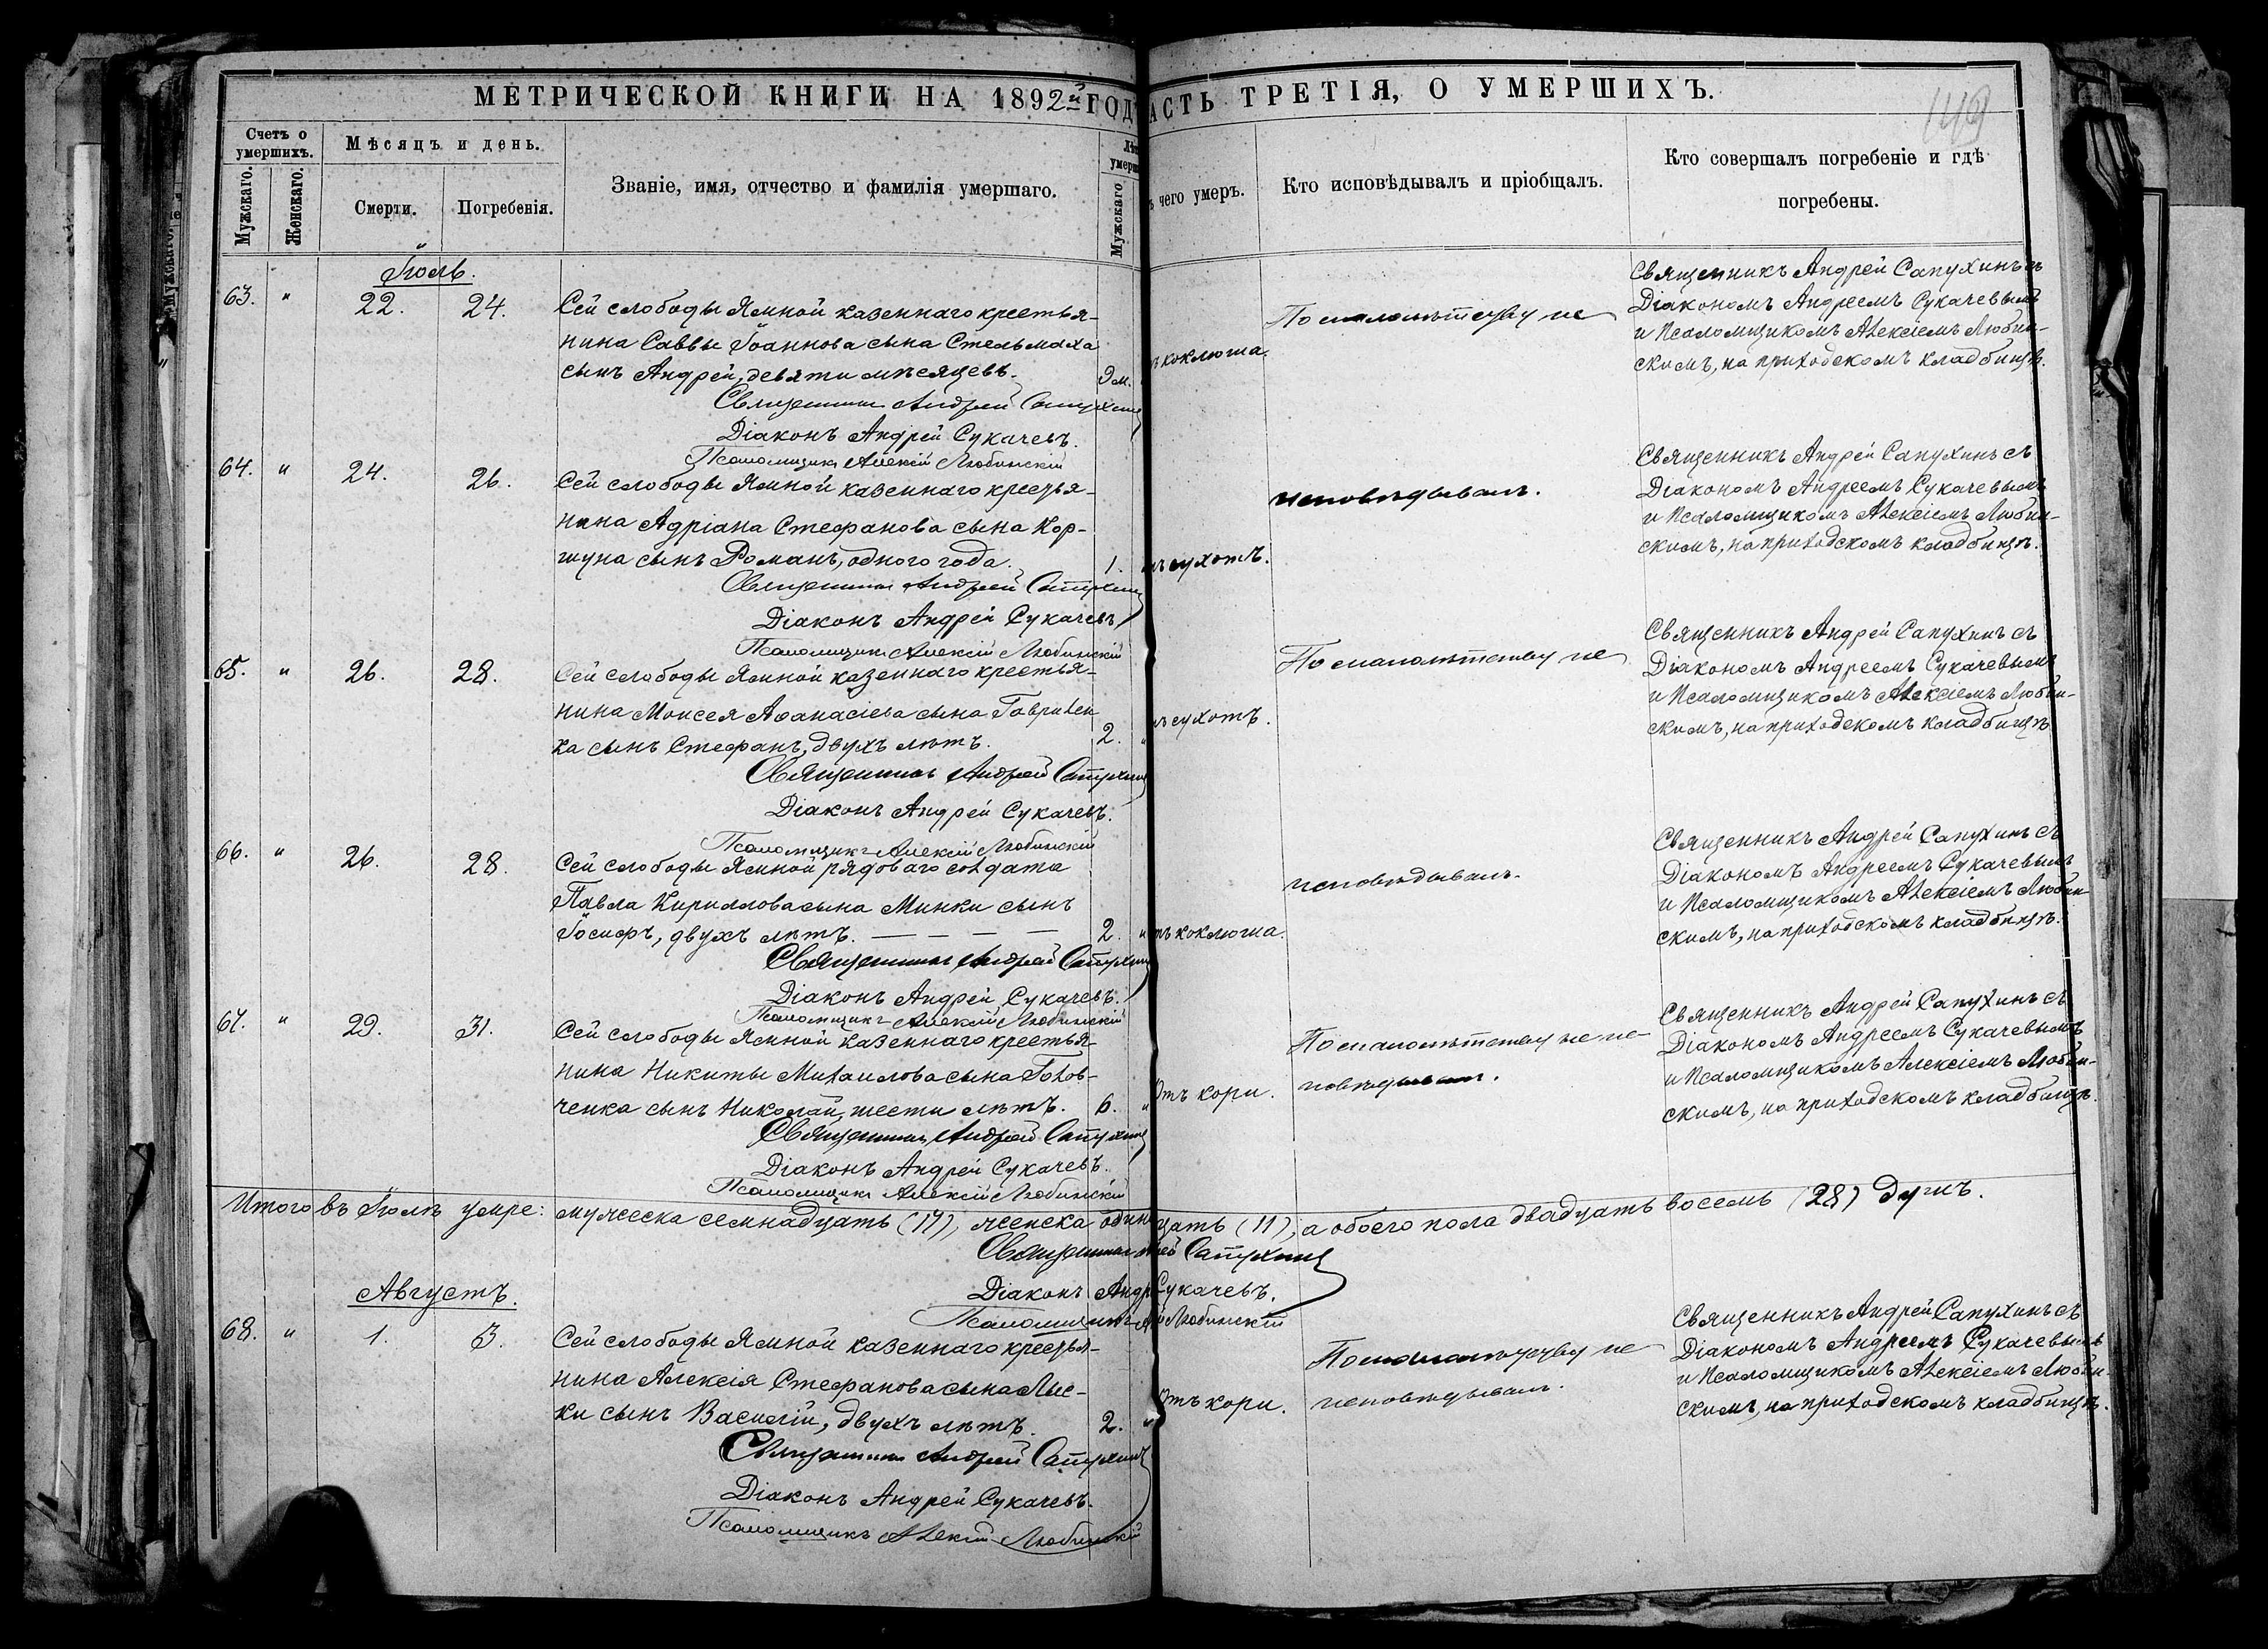 МЕТРИЧЕСКОЙ КНИГИ НА 1892й ГОД
АСТЬ ТРЕТІЯ, О УМЕРШИХЪ.
149
Счетъ о умершихъ.
Мужскаго.
Женскаго.
Мѣсяцъ и день.
Смерти.
Погребенія.
Званіе, имя, отчество и фамилія умершаго.
Лѣ
умерш
Мужскаго
ъ чего умеръ.
Кто исповѣдывалъ и пріобщалъ.
Кто совершалъ погребеніе и гдѣ
погребены.
Іюль.
63. " 22. 24.
Сей слободы Ямной казеннаго крестья-
нина Саввы Іоаннова сына Стельмаха
сынъ Андрей, девяти мѣсяцевъ. 9м.
ъ коклюша.
По малолѣтству не
Священникъ Андрей Сапухинъ съ
Діакономъ Андреемъ Сукачевымъ
и Псаломщикомъ Алексіемъ Любин-
скимъ, на приходскомъ кладбищѣ.
Священникъ Андрей Сапухинъ
Діаконъ Андрей Сукачевъ.
Псаломщикъ Алексій Любинскій
64. " 24. 26.
Сей слободы Ямной казеннаго крестья-
нина Адріана Стефанова сына Кор-
шуна сынъ Романъ, одного года. 1.
ъ сухотъ.
исповѣдывалъ.
Священникъ Андрей Сапухинъ съ
Діакономъ Андреемъ Сукачевымъ
и Псаломщикомъ Алексіемъ Любин-
скимъ, на приходскомъ кладбищѣ.
Священникъ Андрей Сапухинъ
Діаконъ Андрей Сукачевъ,
Псаломщикъ Алексій Любинскій
65. " 26. 28.
Сей слободы Ямной казеннаго крестья-
нина Моисея Аѳанасіева сына Гаврилен
ка сынъ Стефанъ, двухъ лѣтъ. 2. "
ъ сухотъ.
По малолѣтству не
Священникъ Андрей Сапухинъ съ
Діакономъ Андреемъ Сукачевымъ
и Псаломщикомъ Алексіемъ Любин-
скимъ, на приходскомъ кладбищѣ
Священникъ Андрей Сапухинъ
Діаконъ Андрей Сукачевъ.
Псаломщикъ Алексій Любинскій
66. " 26. 28.
Сей слободы Ямной рядоваго солдата
Павла Кириллова сына Минки сынъ
Іосифъ, двухъ лѣтъ. — — — — 2. "
тъ коклюша.
исповѣдывалъ.
Священникъ Андрей Сапухинъ съ
Діакономъ Андреемъ Сукачевымъ
и Псаломщикомъ Алексіемъ Любин
скимъ, на приходскомъ кладбищѣ.
Священникъ Андрей Сапухинъ
Діаконъ Андрей Сукачевъ.
Псаломщикъ Алексій Любинскій
67. " 29. 31.
Сей слободы Ямной казеннаго крестья-
нина Никиты Михаилова сына Голов-
ченка сынъ Николай, шести лѣтъ. 6. "
Отъ кори.
По малолѣтству не ис
повѣдывалъ.
Священникъ Андрей Сапухинъ съ
Діакономъ Андреемъ Сукачевымъ
и Псаломщикомъ Алексіемъ Любин-
скимъ, на приходскомъ кладбищѣ.
Священникъ Андрей Сапухинъ
Діаконъ Андрей Сукачевъ.
Псаломщикъ Алексій Любинскій
Итого въ Іюлѣ умре: мужеска семнадцать (17), женска один цать (11), а обоего пола двадцать восемь (28) душъ.
Священникъ Сапухинъ
Діаконъ Андр Сукачевъ.
Псаломщикъ Любинскій
Августъ.
68. " 1. 3.
Сей слободы Ямной казеннаго крестья-
нина Алексія Стефанова сына Лыс-
ки сынъ Василій, двухъ лѣтъ. 2. "
Отъ кори.
По малолѣтству не
исповѣдывалъ.
Священникъ Андрей Сапухинъ съ
Діакономъ Андреемъ Сукачевымъ
и Псаломщикомъ Алексіемъ Любин-
скимъ, на приходскомъ кладбищѣ.
Священникъ Андрей Сапухинъ
Діаконъ Андрей Сукачевъ.
Псаломщикъ Алексій Любинскій